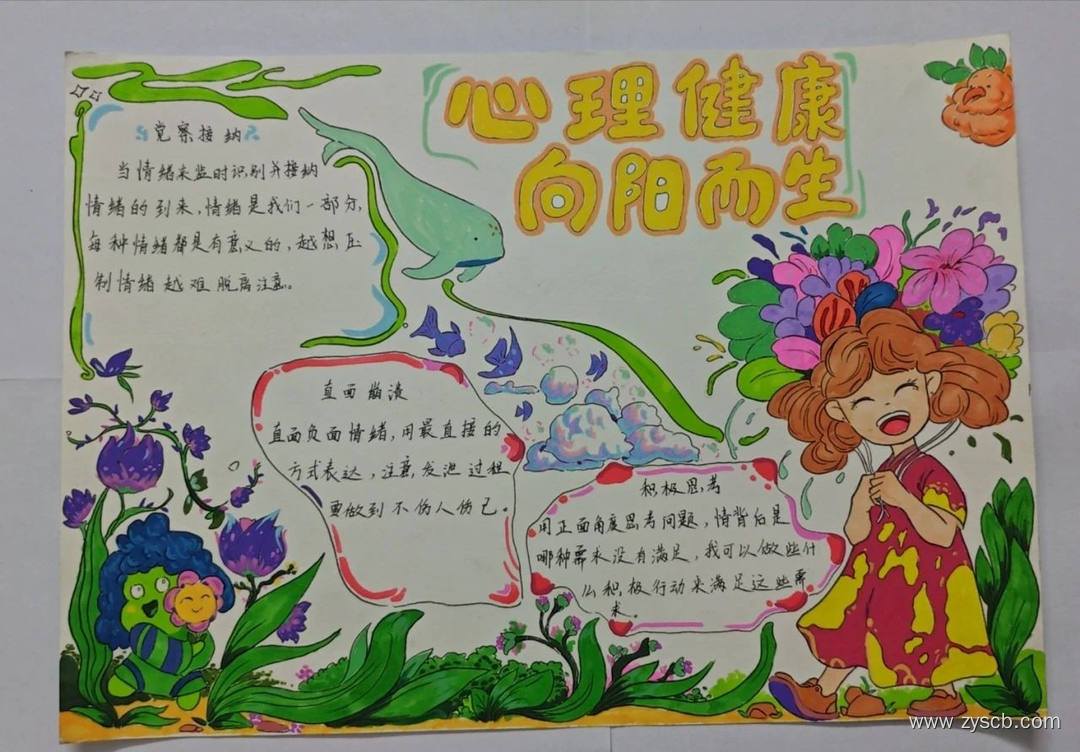 心理健康
向阳而生
觉察接纳
当情绪来临时识别并接纳
情绪的到来,情绪是我们一部分,
每种情绪都是有意义的,越想压
制情绪越难脱离注意。
直面崩溃
直面负面情绪,用最直接的
方式表达,注意发泄过程
要做到不伤人伤己。
积极思考
用正面角度思考问题,情背后是
哪种需求没有满足,我可以做些什
么积极行动来满足这些需
求。
www.zyscb.com